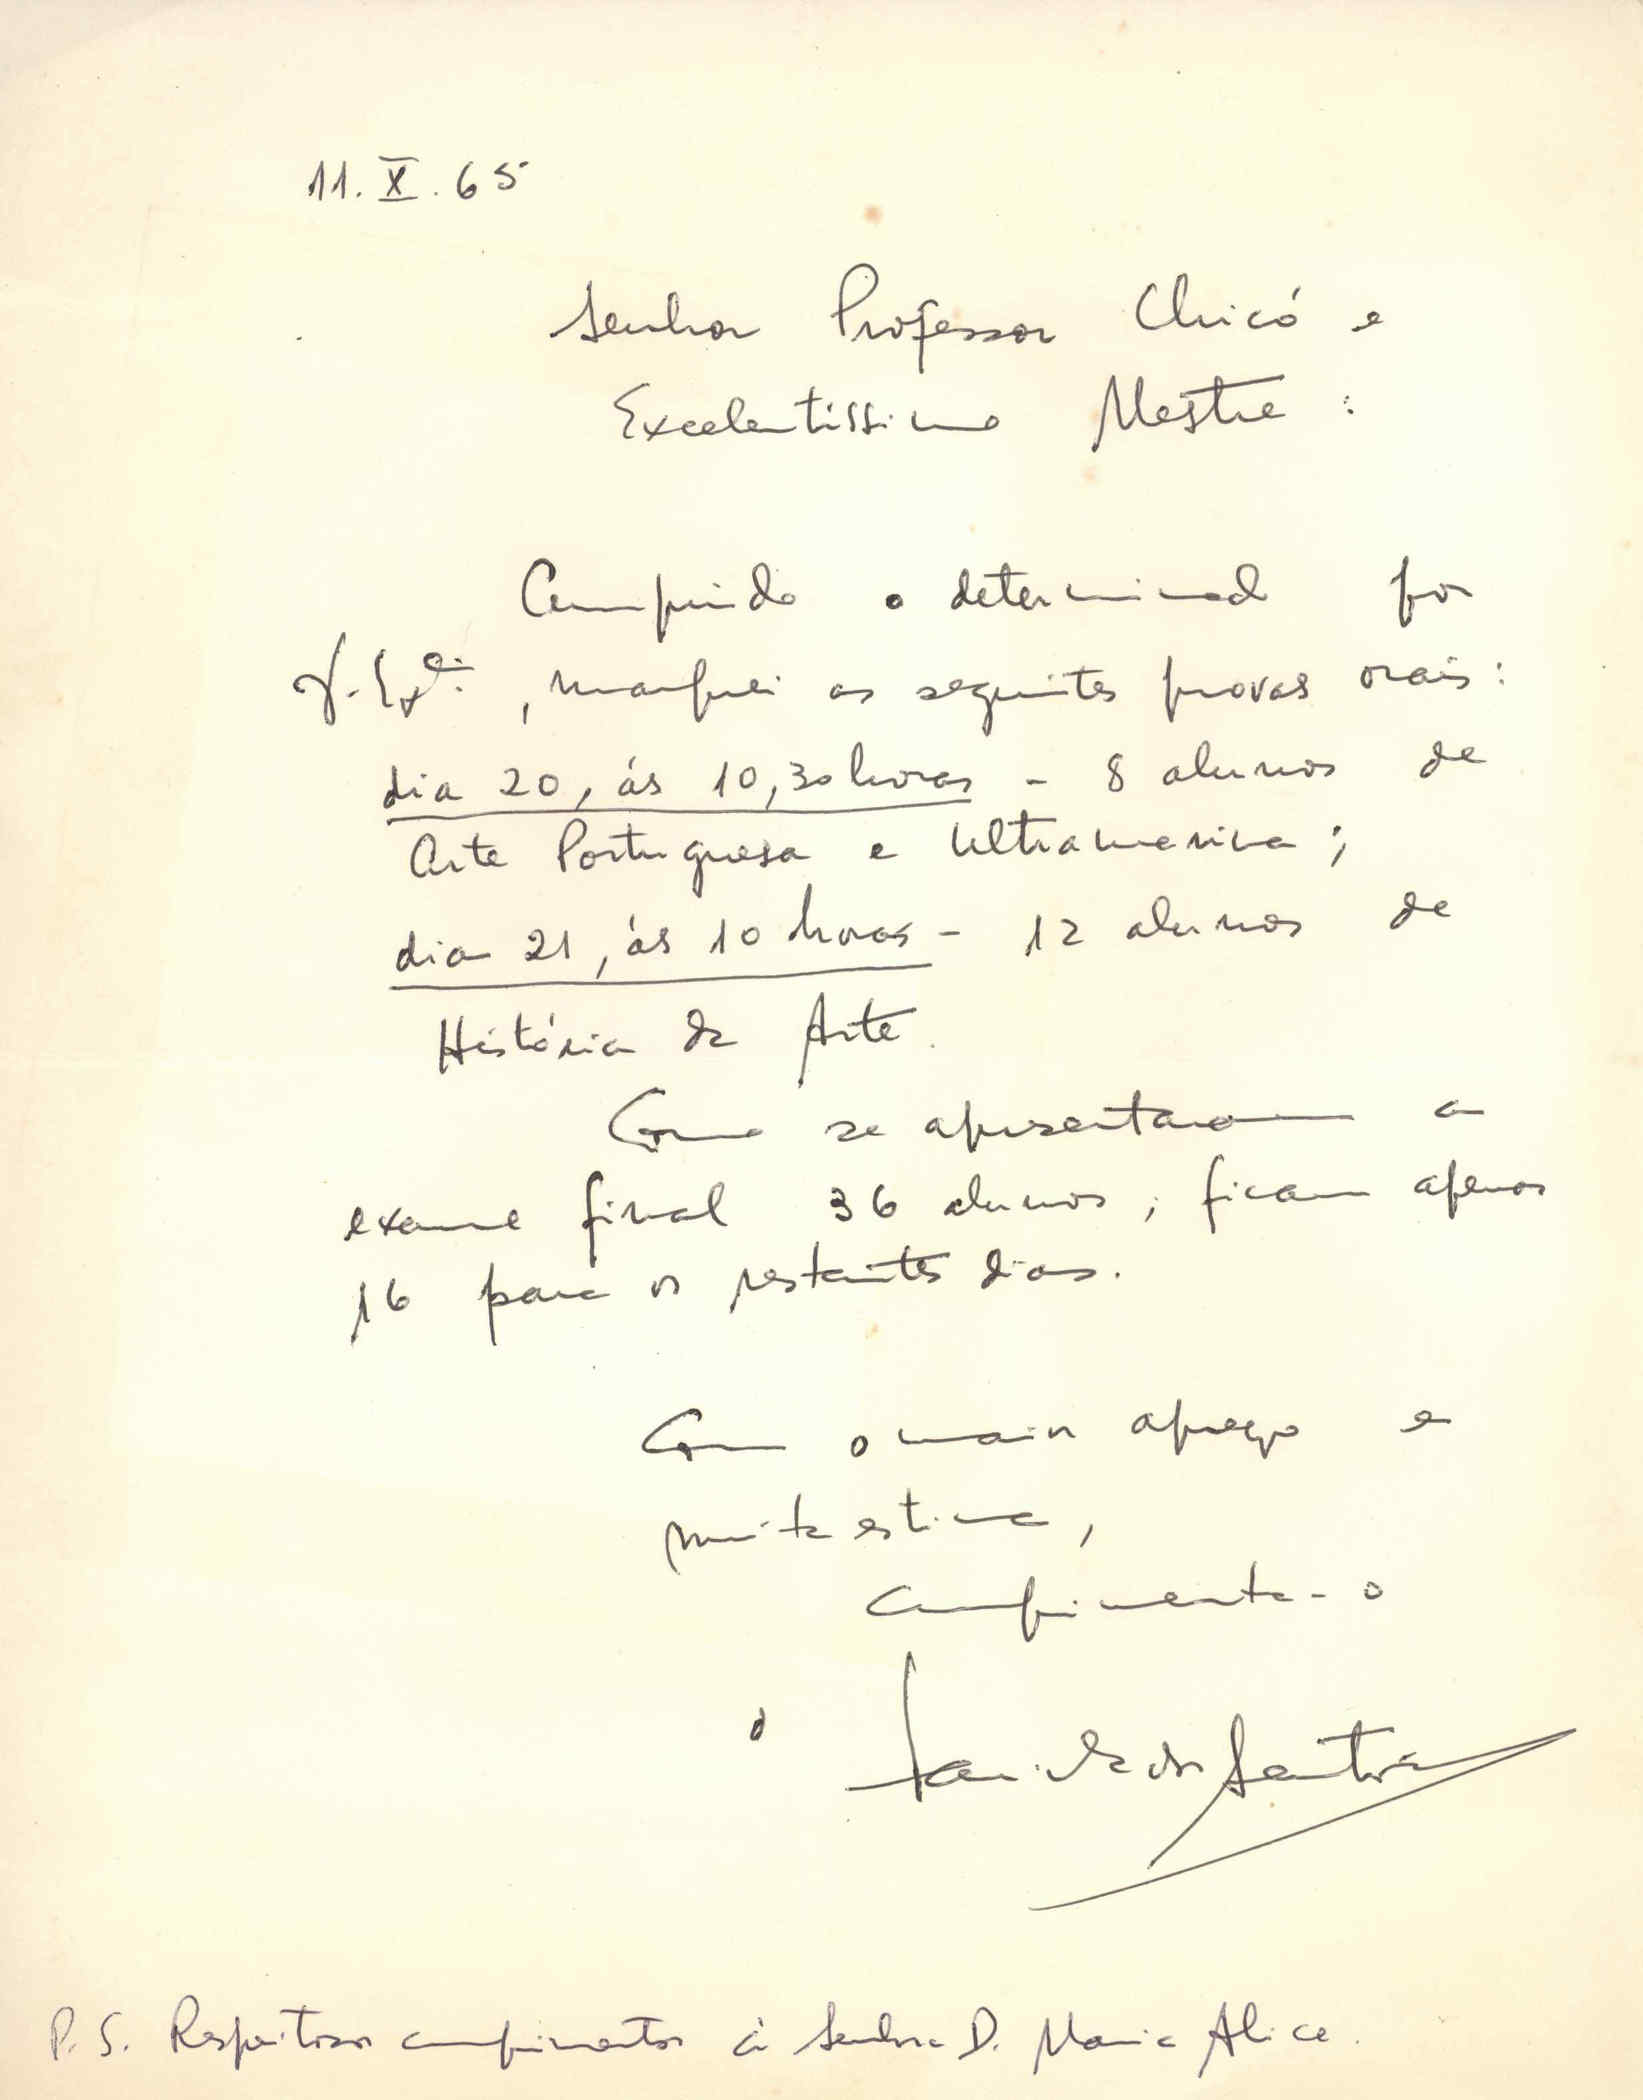 11.X.65
Senhor Professor Chicó e
Excelentíssimo Mestre :
Cumprindo o determinado por
V. Exª. , marquei as seguintes provas orais :
dia 20, ás 10,30 horas - 8 alunos de
Arte Portuguesa e Ultramarina ;
dia 21, ás 10 horas - 12 alunos de
História da Arte.
Como se apresentaram a
exame final 36 alunos, ficam apenas
16 para os restantes dias.
Com o maior apreço e
muita estima,
cumprimenta-o
o
dos Santos
P. S. Respeitosos cumprimentos à Senhora D. Maria Alice.